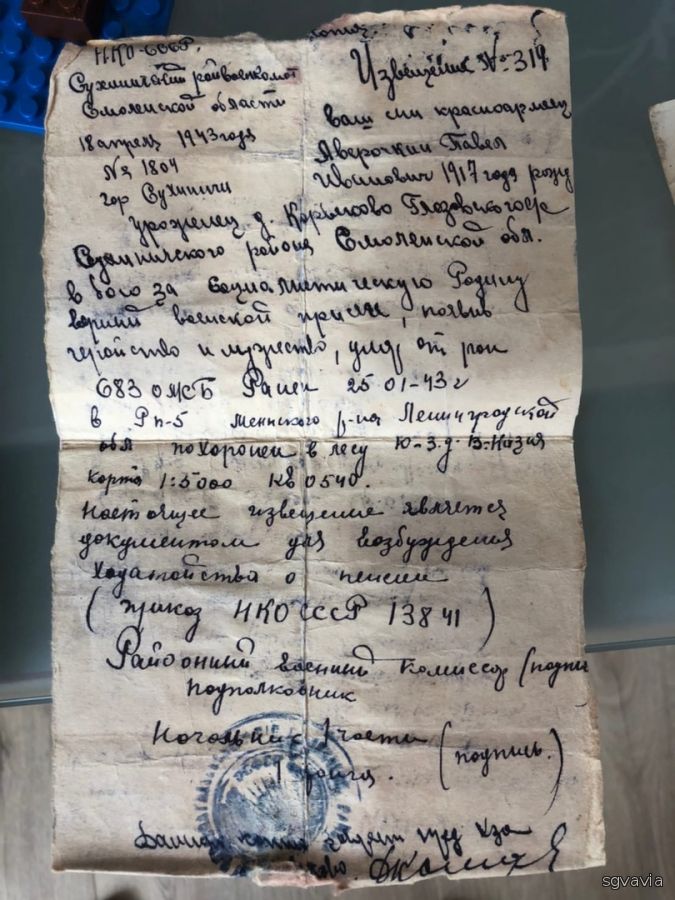 копия
НКО-СССР.
Сухиничский райвоенкомат
Смоленской области
18 апреля 1943 года
№ 1804
гор Сухиничи
Извещение № 319
Ваш сын красноармеец
Аверочкин Павел
1917 года рожд
уроженец д. Глазовского с/с
Сухиничского района Смоленской обл.
в бою за социалистическую Родину
верный военской присяги, появив
геройство и мужество, умер от ран
683 ОЖБ Ранен 25 01-43 г
в Рп-5 р-на Ленинградской
обл похоронен в лесу Ю-З.д.
карта 1:5000 кв 0540.
Настоящее извещение является
документом для возбуждения
ходатайства о пенсии
(приказ НКО СССР 138 41)
Районный военный комиссар (подпи
подполковник
Начальник 1 части
(подпись.)
sgvavia